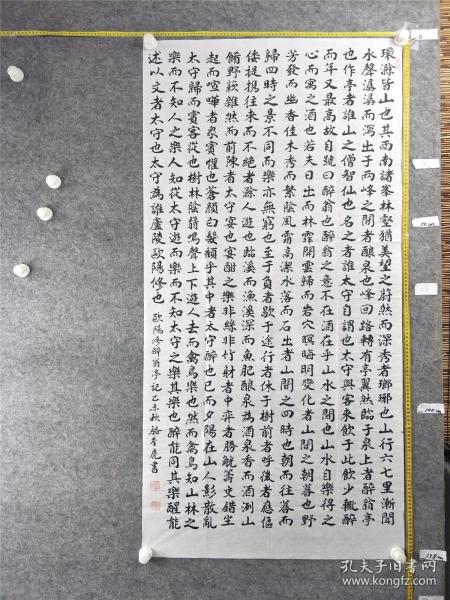 環滁皆山也其西南諸峯林壑猶美望之蔚然而深秀者瑯琊也山行六七里漸聞
水聲潺潺而瀉出于兩峰之間者釀泉也峰回路轉有亭翼然臨于泉上者醉翁亭
也作亭者誰山之僧智仙也名之者誰太守自謂也太守與客來飲于此飲少輒醉
而年又最高故自號曰醉翁也醉翁之意不在酒在乎山水之間也山水自樂得之
心而寓之酒也若夫日出而林霏開雲歸而岩穴暝晦明變化者山間之朝暮也野
芳發而幽香佳木秀而繁陰風霜高潔水落而石出者山間之四時也朝而往暮而
歸四時之景不同而樂亦無窮也至于負者歌于途行者休于樹前者呼後者應傴
僂提攜往來而不絕者滁人遊也臨溪而漁溪深而魚肥釀泉為酒泉香而酒洌山
餚野蔌雜然而前陳者太守宴也宴酣之樂非絲非竹射者中弈者勝觥籌交錯坐
起而喧嘩者衆賓懽也蒼顏白髮頹乎其中者太守醉也已而夕陽在山人影散亂
太守歸而賓客從也樹林陰翳鳴聲上下遊人去而禽鳥樂也然而禽鳥知山林之
樂而不知人之樂人知從太守遊而樂而不知太守之樂其樂也醉能同其樂醒能
述以文者太守也太守為誰廬陵歐陽修也
歐陽修醉翁亭記乙未秋書
0
50cm
100cm
138cm
孔夫子旧书网
kongfz.com